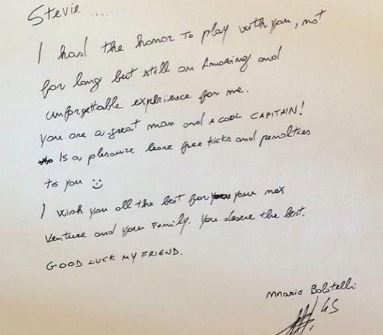 Stevie ....
I had the honor to play with you, not
for long but still an Amazing and
unforgettable experience for me.
you are a great man and a cool CAPITAIN!
Is a pleasure leave free kicks and penalties
to you ☺
I wish you all the best for your nex
venture and your Family. you deserve the best.
GOOD LUCK MY FRIEND.
Mario Balotelli
45